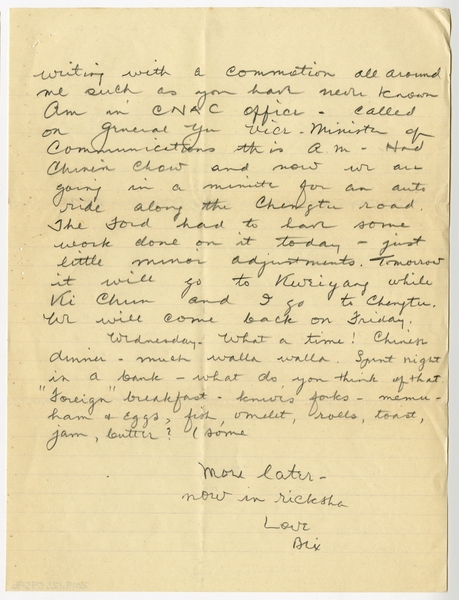 writing with a commotion all around
me such as you have never known
Am in CNAC office - called
on General Yu Vice-Minister of
Communications this A M - Had
Chinese Chow and now we are
going in a minute for an auto
ride along the Chengtu road.
The Ford had to have some
work done on it today - just
little minor adjustments. Tomorrow
it will go to Kweiyang while
Ki Chun and I go to Chengtu.
We will come back on Friday.
Wednesday - What a time! Chinese
dinner - much walla walla. Spent night
in a bank - what do you think of that
"Foreign" breakfast - knives forks - menu -
ham & eggs, fish omelet, rolls, toast,
jam, butter? (some
More later -
now in ricksha
Love
Bix